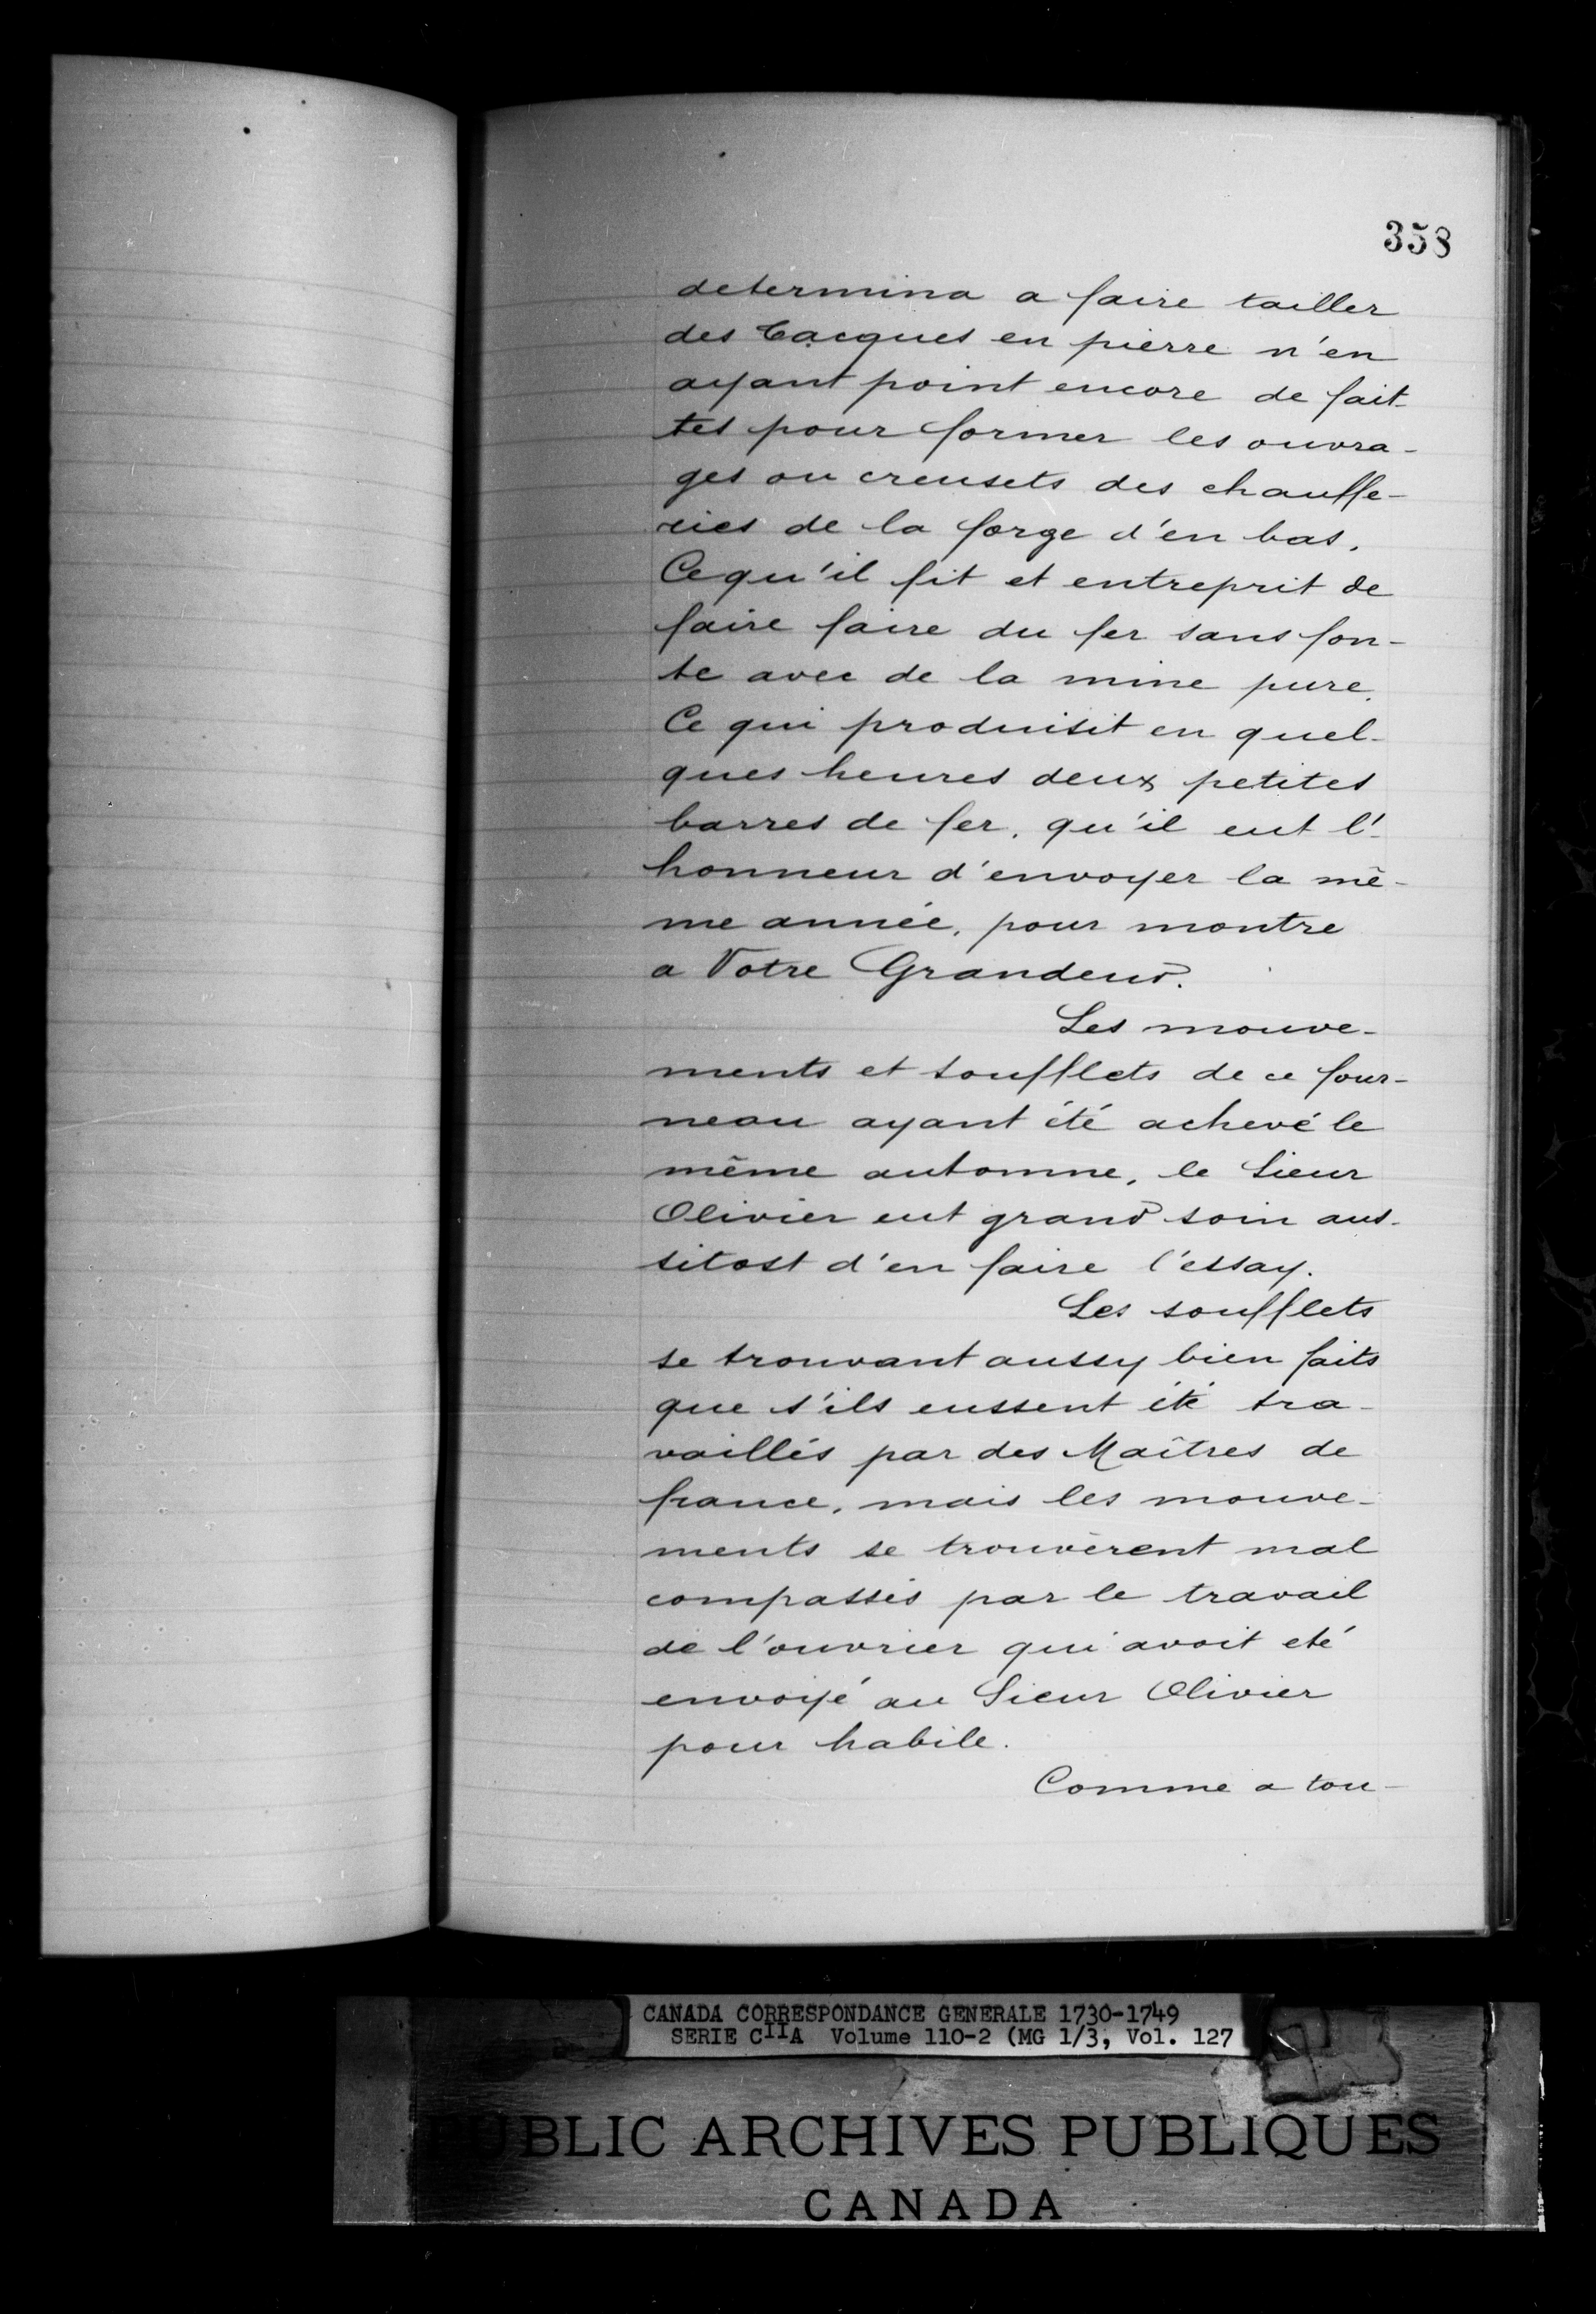 358
determina a faire tailler
des Tacques en pierre n'en
ayant point encore de fait-
tes pour former les ouvra-
ges ou creusets des chauffe-
ries de la forge d'en bas.
Ce qu'il fit et entreprit de
faire faire du fer sans fon-
te avec de la mine pure.
Ce qui produisit en quel-
ques heures deux petites
barres de fer, qu'il eut l'-
honneur d'envoyer la mê-
me année, pour montre
a Votre Grandeur.
Les mouve-
ments et soufflets de ce four-
neau ayant été achevé le
même automne, le Sieur
Olivier eut grand soin aus-
sitost d'en faire l'essay.
Les soufflets
se trouvant aussy bien faits
que s'ils eussent été tra-
vaillés par des Maîtres de
france, mais les mouve-
ments se trouvèrent mal
compassés par le travail
de l'ouvrier qui avoit eté
envoyé au Sieur Olivier
pour habile.
Comme a tou-
CANADA CORRESPONDANCE GENERALE 1730-1749
SERIE CIIA Volume 110-2 (MG 1/3, Vol. 127
PUBLIC ARCHIVES PUBLIQUES
CANADA